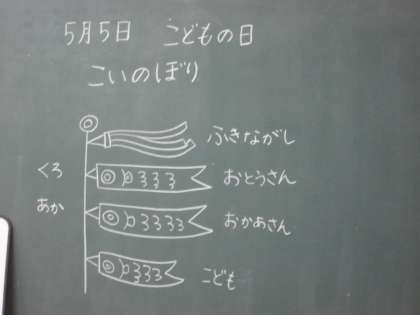 5月5日 こどもの日
こいのぼり
ふきながし
くろ おとうさん
あか おかあさん
こども